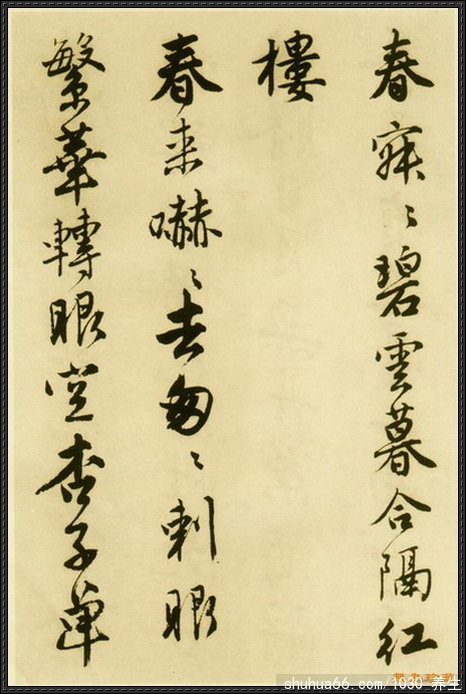 春寂〻碧雲暮合隔紅
樓
春来嚇〻去匆〻刺眼
繁華轉眼空杏子單
shuhua66.com/1030_养生